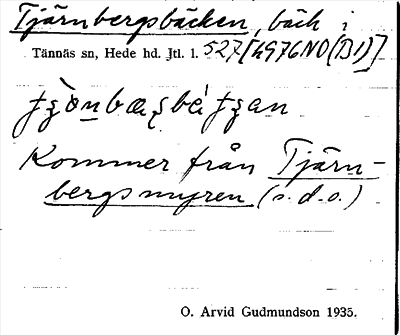 Tjärnbergsbäcken, bäck i
Tännäs sn, Hede hd. Jtl. l. 527[4976NO(BI)]
Kommer från Tjärn-
bergsmyren (s.d.o.)
O. Arvid Gudmundson 1935.